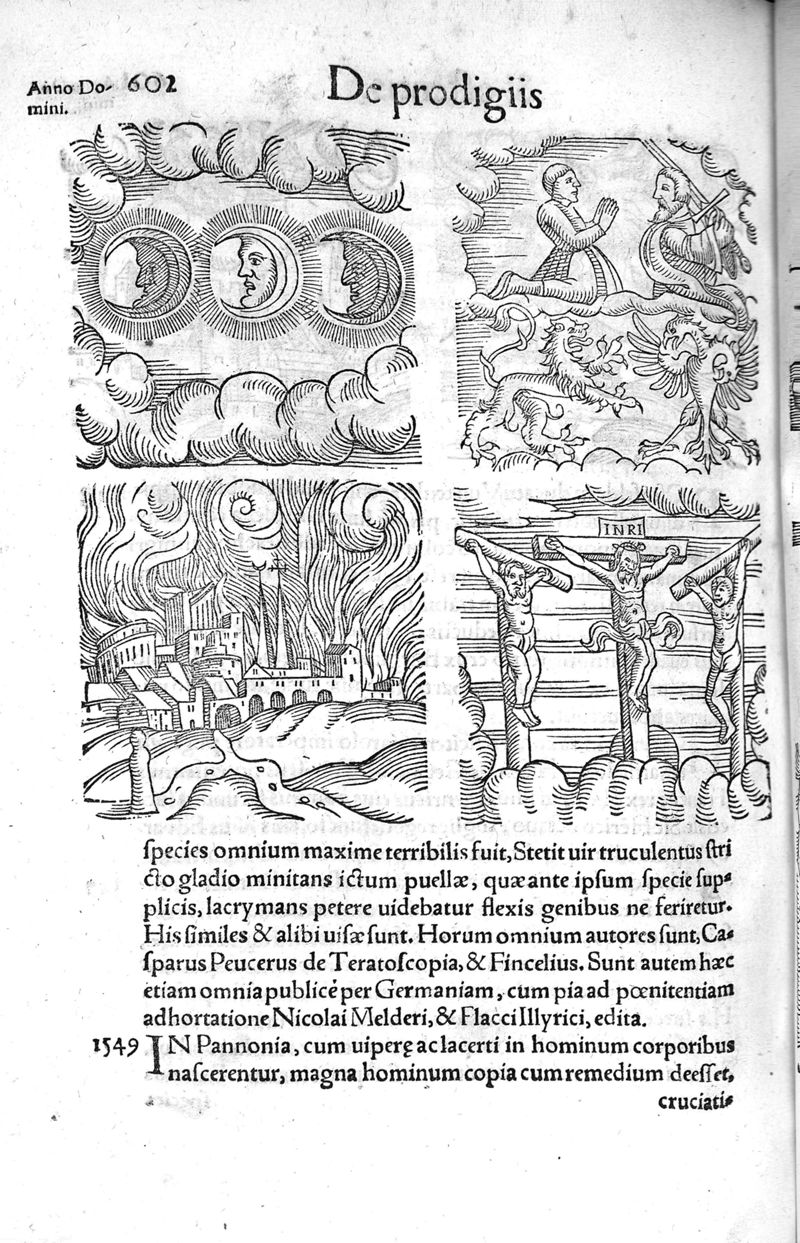 Anno Do-
mini.
602
De prodigiis
INRI
ſpecies omnium maxime terribilis fuit, Stetit uir truculentus ſtri
cto gladio minitans ictum puellæ, quæ ante ipſum ſpecie ſup-
plicis, lacrymans petere uidebatur flexis genibus ne feriretur.
His ſimiles & alibi uiſæ ſunt. Horum omnium autores ſunt, Ca-
ſparus Peucerus de Teratoſcopia, & Fincelius. Sunt autem hæc
etiam omnia publicé per Germaniam, cum pia ad pœnitentiam
adhortatione Nicolai Melderi, & Flacci Illyrici, edita.
1549 IN Pannonia, cum uiperę ac lacerti in hominum corporibus
naſcerentur, magna hominum copia cum remedium deeſſet,
cruciati-